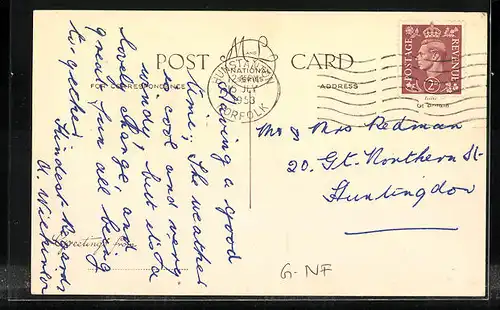 POST CARD
FOR CORRESPONDENCE
ADDRESS
HUNSTANTON
NORFOLK
1953
POSTAGE REVENUE
Having a good
time, The weather
is cool and very
windy, but its a
lovely change, and
great fun all being
together.
Kindest Regards
Greetings from
Mr & Mrs Redman
20. Gt. Northern St
Huntingdon
G-NF